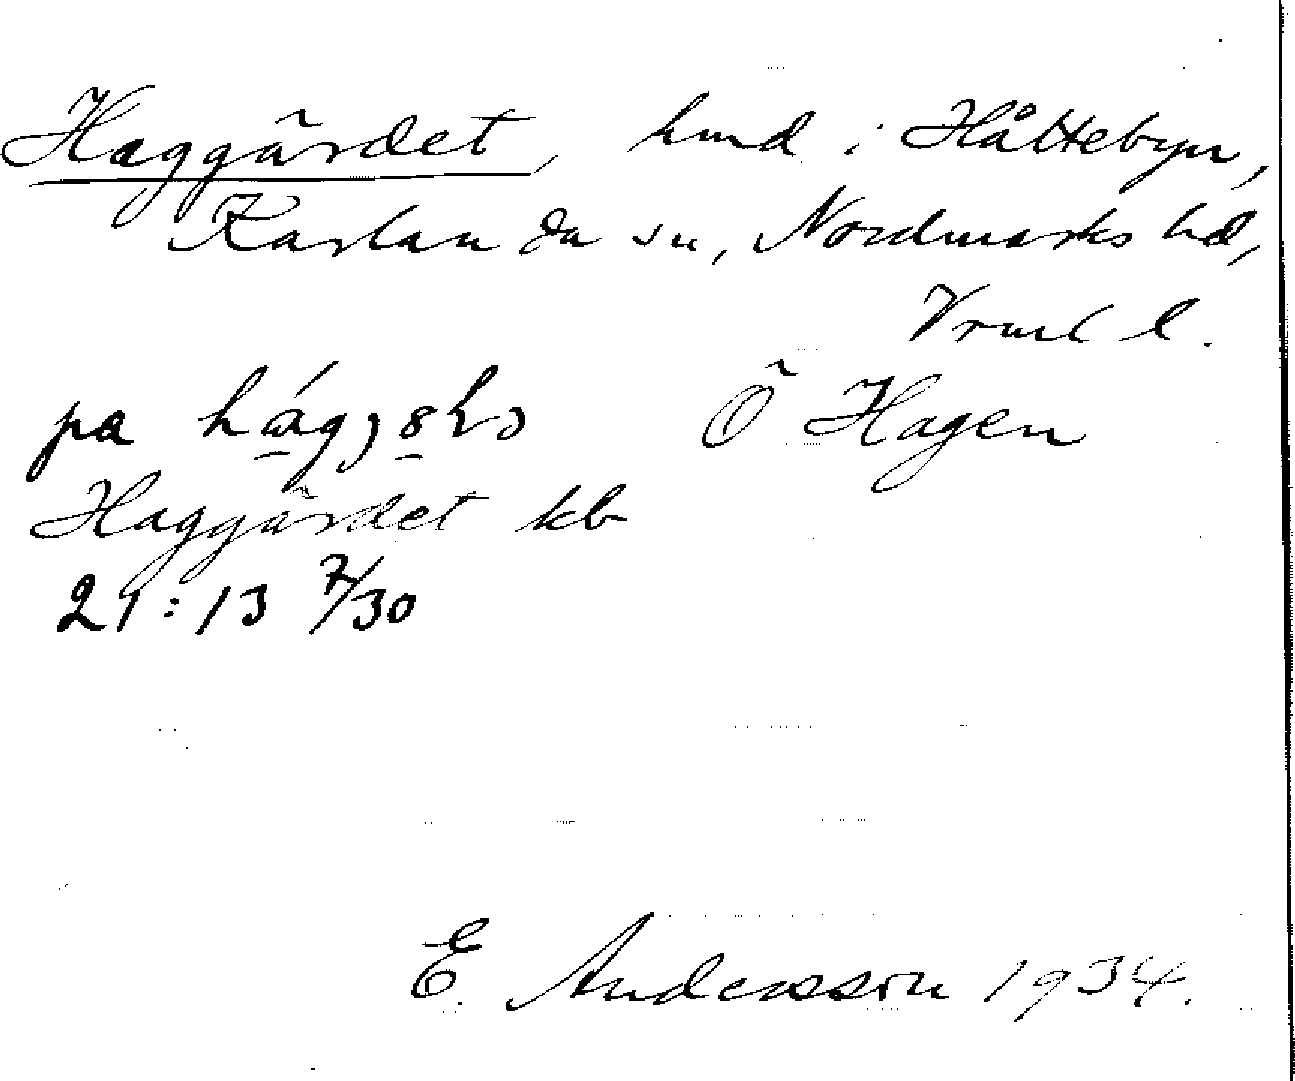 Haggärdet, hmd i Håltebyn,
Karlanda sn, Nordmarks hd,
Vrml l.
pa Ö Hagen
Haggärdet kb
21:13 7/30
E. Andersson 1934.